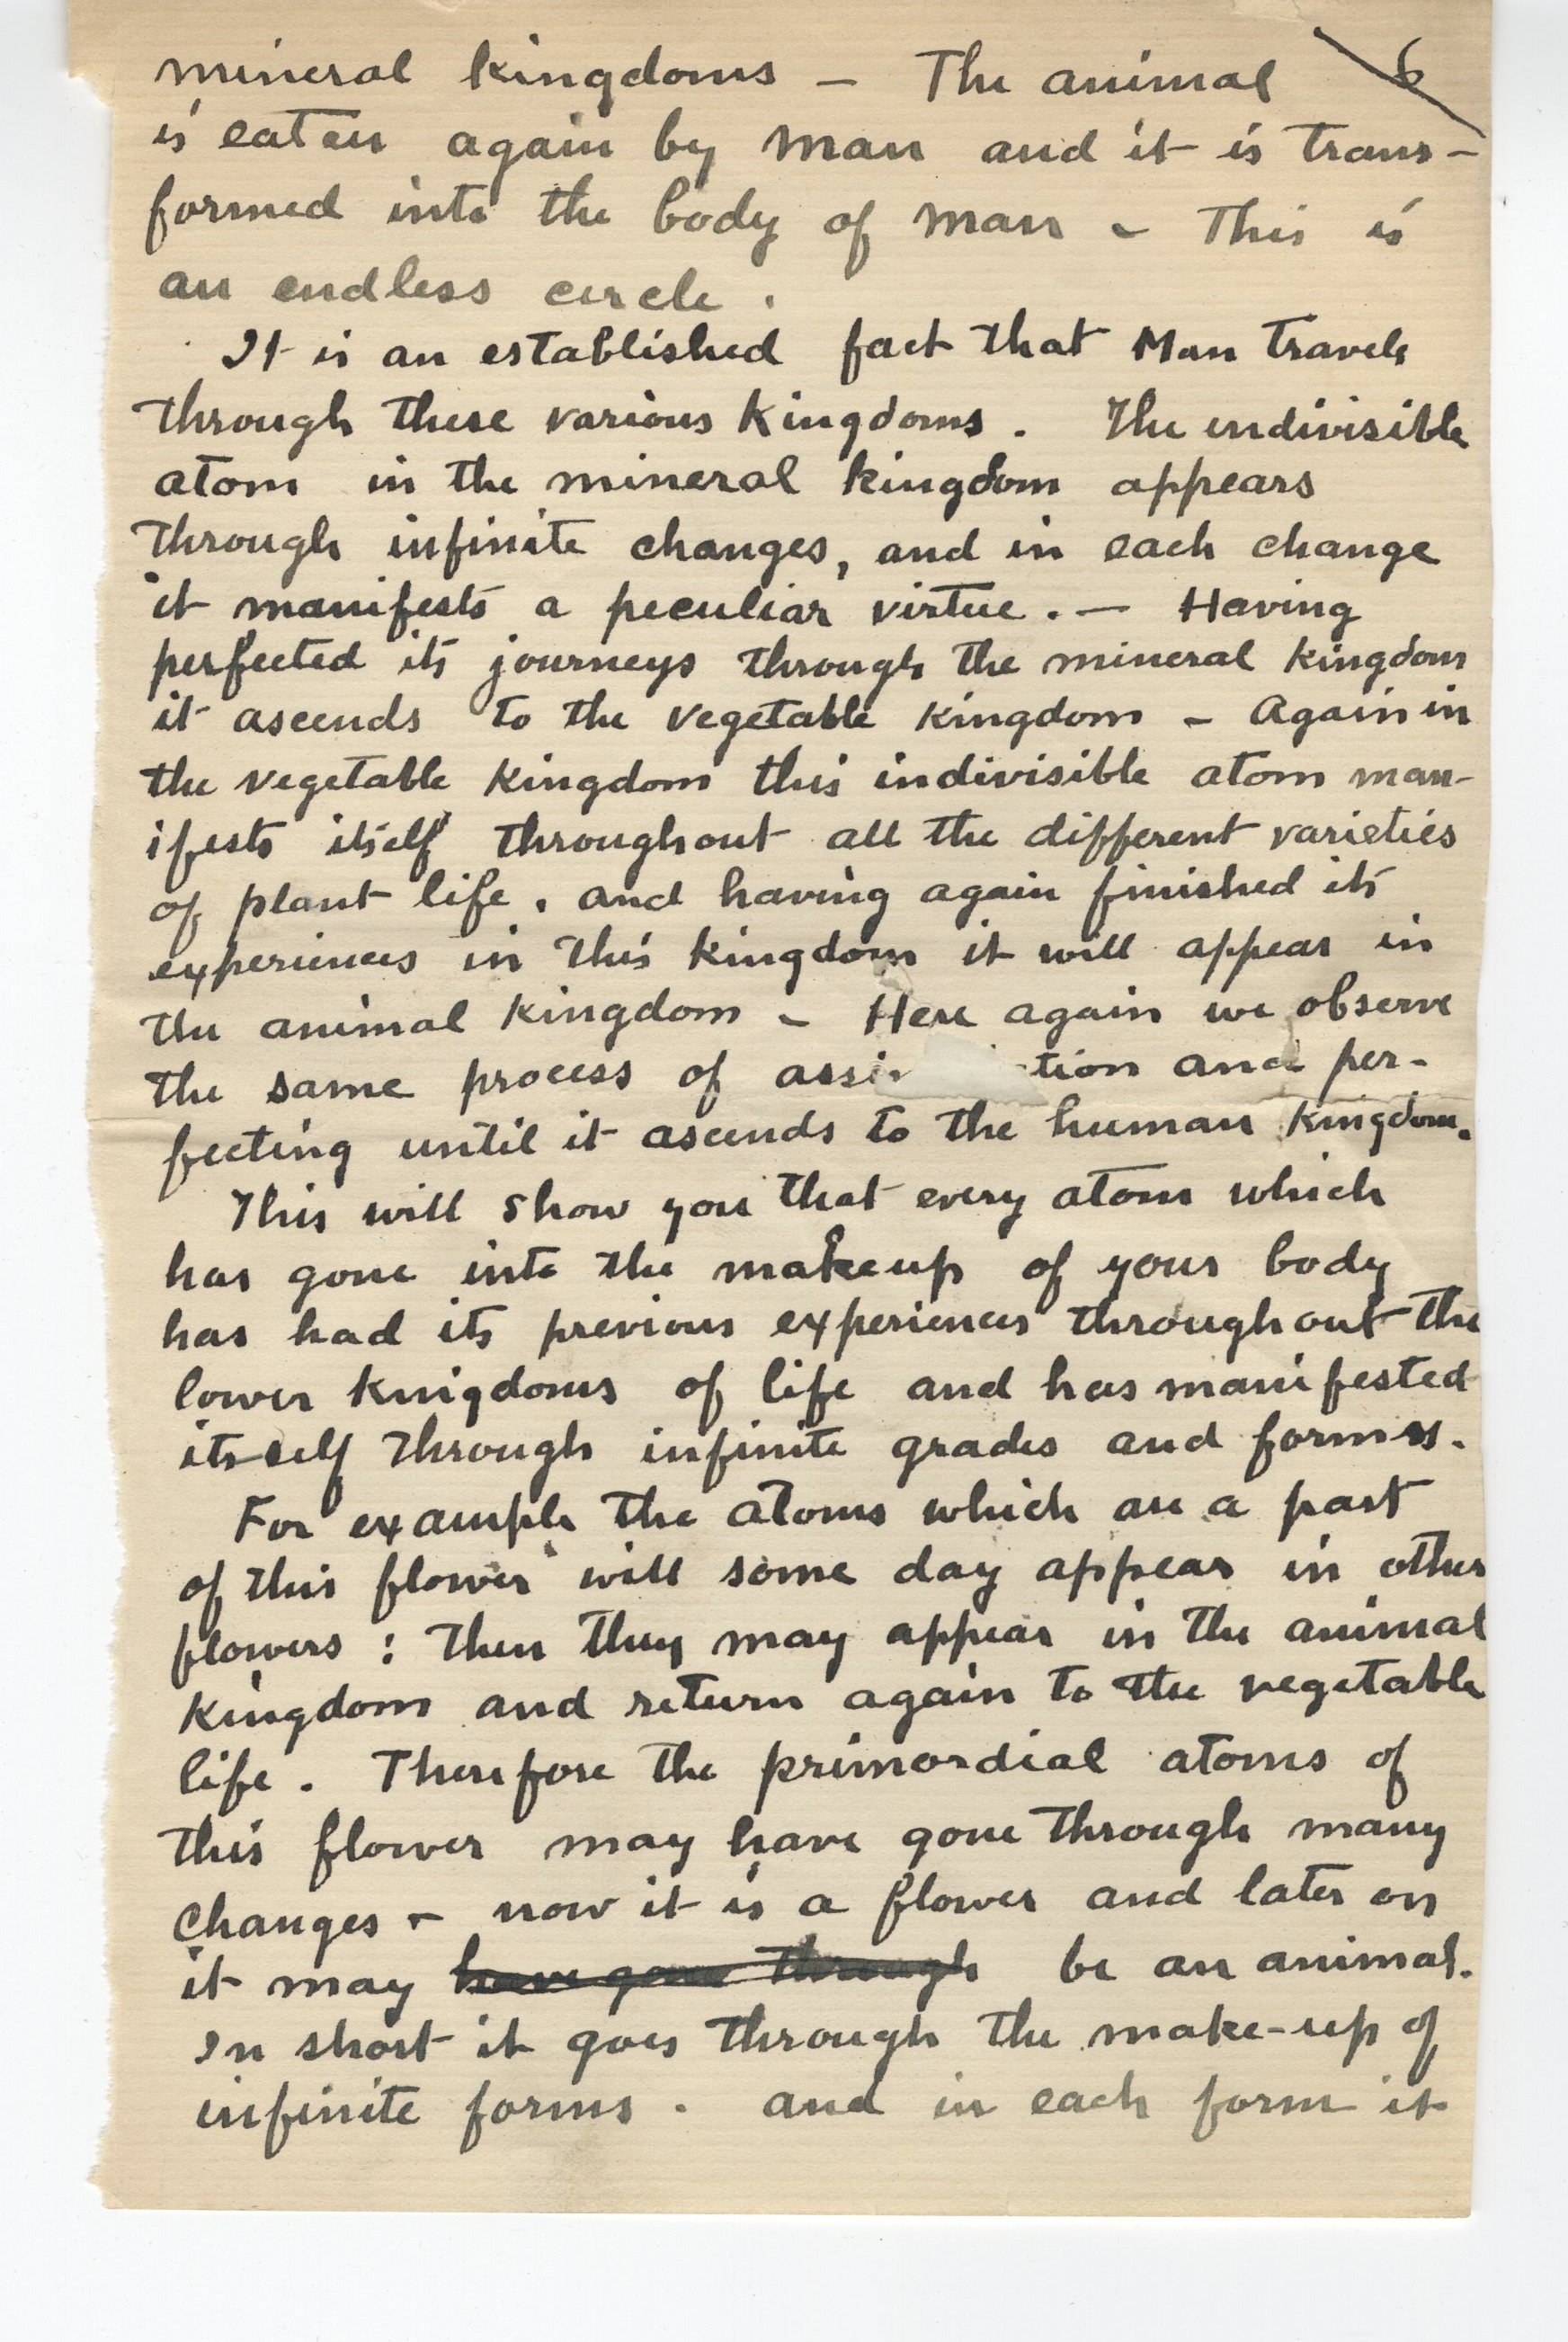 mineral kingdoms — The animal 6
is eaten again by man and it is trans-
formed into the body of man - This is
an endless circle.
It is an established fact that Man travels
through these various kingdoms. The indivisible
atom in the mineral kingdom appears
through infinite changes, and in each change
it manifests a peculiar virtue. — Having
perfected its journeys through the mineral kingdom
it ascends to the vegetable kingdom - Again in
the vegetable kingdom this indivisible atom man-
ifests itself throughout all the different varieties
of plant life. and having again finished its
experiences in this kingdom it will appear in
the animal kingdom - Here again we observe
the same process of assi tion and per-
fecting until it ascends to the human kingdom.
This will show you that every atom which
has gone into the makeup of your body
has had its previous experiences throughout the
lower kingdoms of life and has manifested
itself through infinite grades and forms.
For example the atoms which are a part
of this flower will some day appear in other
flowers: Then they may appear in the animal
kingdom and return again to the vegetable
life. Therefore the primordial atoms of
this flower may have gone through many
changes - now it is a flower and later on
it may have gone through be an animal.
In short it goes through the make-up of
infinite forms. and in each form it